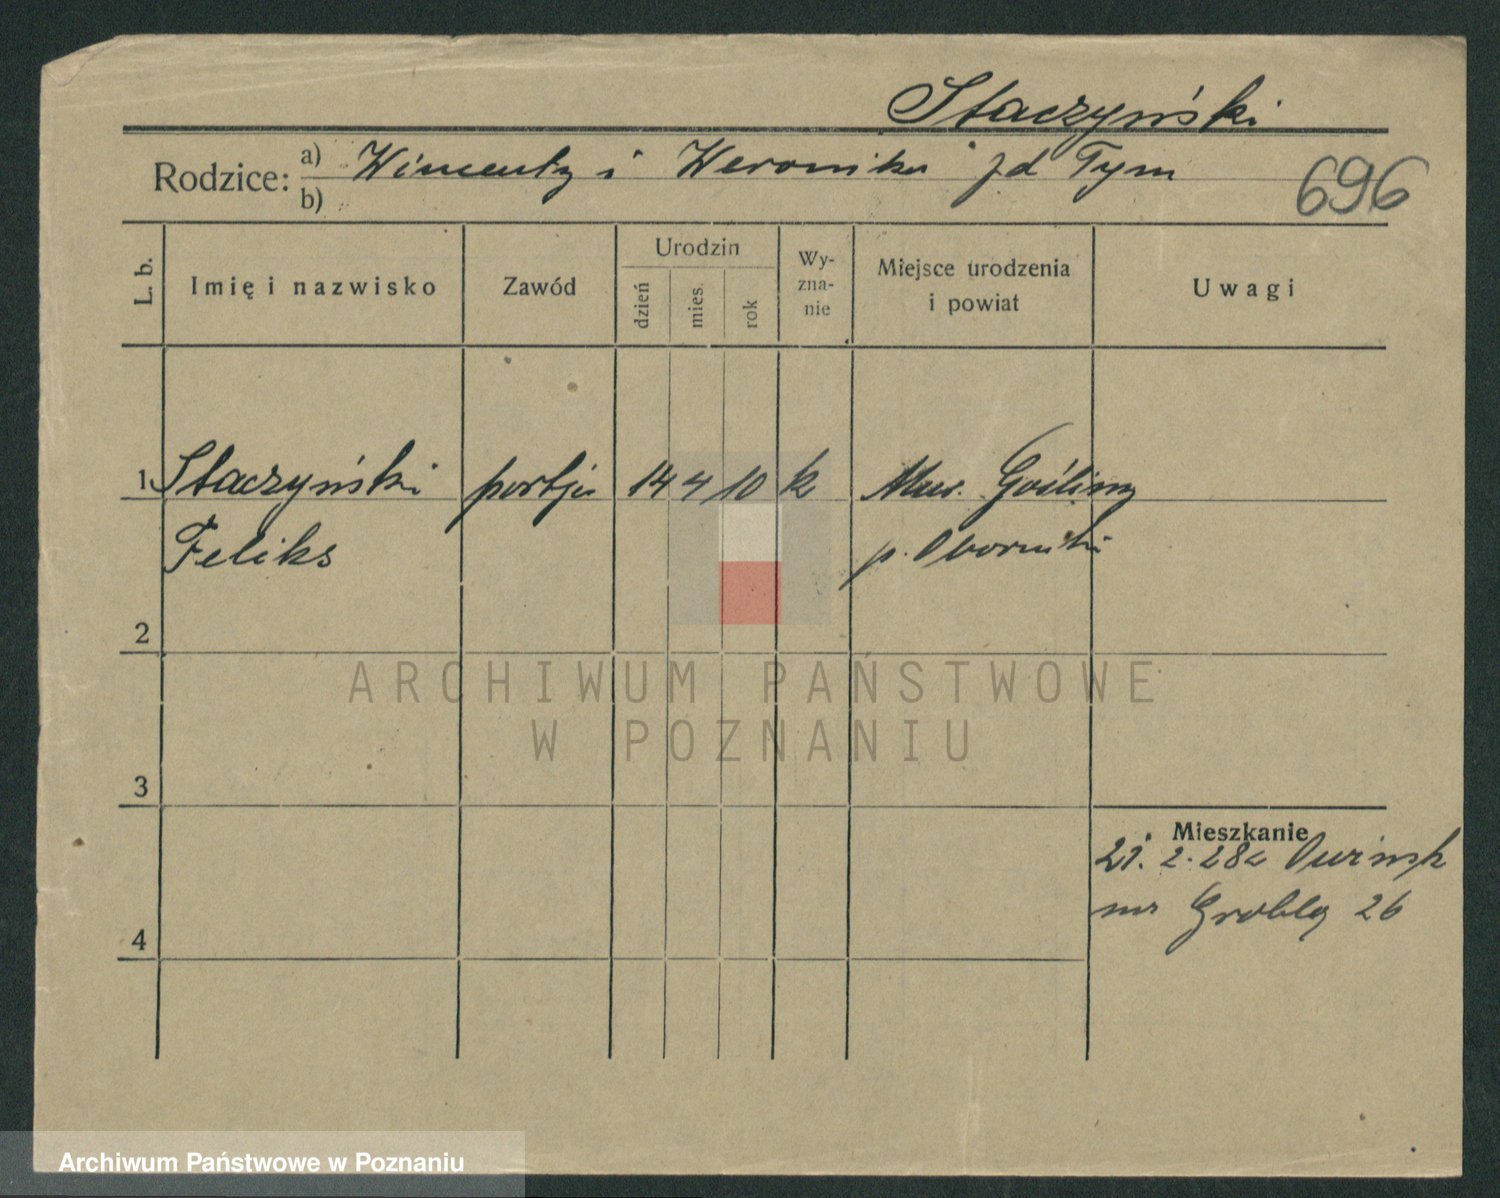 Staczyński
Rodzice: a) Wincenty i Weronika zd Tym
b)
696
L. b.
Imię i nazwisko
Zawód
Urodzin
dzień
mies.
rok
Wy-
zna-
nie
Miejsce urodzenia
i powiat
Uwagi
1 Staczyński portje 14 4 10 k Mur. Gośliny
Feliks p. Oborniki
2
3
4
Mieszkanie
21. 2. 28 z Owinsk
na Groblę 26
ARCHIWUM PAŃSTWOWE
W POZNANIU
Archiwum Państwowe w Poznaniu